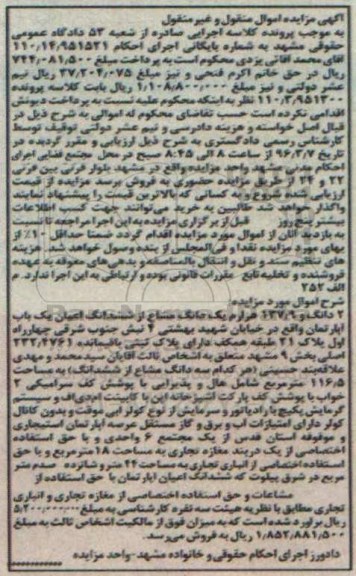 آگهی مزایده اموال منقول و غیر منقول
به موجب پرونده کلاسه اجرایی صادره از شعبه ۵۳ دادگاه عمومی
حقوقی مشهد به شماره بایگانی اجرای احکام ۱۱۰/۱۴/۹۵۱۵۳۱
آقای محمد آقائی یزدی محکوم است به پرداخت مبلغ ۷۴۴/۰۸۱/۵۰۰
ریال در حق خانم اکرم فتحی و نیز مبلغ ۳۷/۲۰۴/۰۷۵ ریال نیم
عشر دولتی و نیز مبلغ ۱/۱۰۸/۸۰۰/۰۰۰ ریال بابت کلاسه پرونده
۱۱۰/۳/۹۵۱۳۰۰ نظر به اینکه محکوم علیه نسبت به پرداخت دیونش
اقدامی نکرده است حسب تقاضای محکوم له اموالی به شرح ذیل در
قبال اصل خواسته و هزینه دادرسی و نیم عشر دولتی توقیف توسط
کارشناس رسمی دادگستری به شرح ذیل ارزیابی و مقرر گردیده در
تاریخ ۹۶/۲/۷ از ساعت ۸ الی ۸:۴۵ صبح در محل مجتمع قضایی اجرای
احکام مدنی مشهد واحد مزایده واقع در مشهد بلوار قرنی بین قرنی
۲۲ و ۲۴ از طریق مزایده حضوری به فروش برسد مزایده از قیمت
ارزیابی شده شروع و به کسانی که بالاترین قیمت را پیشنهاد نمایند
واگذار خواهد شد طالبین به خرید می‌توانند جهت کسب اطلاعات
بیشتر پنج روز قبل از برگزاری مزایده به این اجرا مراجعه تا نسبت
به بازدید آنان از اموال مورد مزایده اقدام گردد ضمنا حداقل ۱۰٪ از
بهای مورد مزایده نقدا و فی‌المجلس از برنده وصول خواهد شد. هزینه
های تنظیم سند و نقل و انتقال بالمناصفه و بدهی‌های معوقه به عهده
فروشنده و تخلیه تابع مقررات قانونی بوده و ارتباطی به این اجرا ندارد. م
الف ۲۵۲
شرح اموال مورد مزایده:
۲ دانگ و ۱۳۷/۹ هزارم یک دانگ مشاع از ششدانگ اعیان یک باب
آپارتمان واقع در خیابان شهید بهشتی ۴ نبش جنوب شرقی چهارراه
اول پلاک ۲۱ طبقه همکف دارای پلاک ثبتی باقیمانده ۲۳۲/۴۷۶۱
اصلی بخش ۹ مشهد متعلق به اشخاص ثالث آقایان سید محمد و مهدی
علاقه‌بند حسینی (هر کدام سه دانگ مشاع از ششدانگ) به مساحت
۱۱۶/۵ مترمربع شامل هال و پذیرایی با پوشش کف سرامیکی ۲
خواب با پوشش کف پارکت آشپزخانه اپن با کابینت ام‌دی‌اف و سیستم
گرمایش پکیج با رادیاتور و سرمایش از نوع کولر آبی موقت و بدون کانال
کولر دارای امتیازات آب و برق و گاز مستقل عرصه آپارتمان استیجاری
و موقوفه آستان قدس از یک مجتمع ۶ واحدی و با حق استفاده
اختصاصی از یک دربند مغازه تجاری به مساحت ۱۸ مترمربع و با حق
استفاده اختصاصی از انباری تجاری به مساحت ۲۴ متر و شانزده صدم متر
مربع در شرق پیلوت که ششدانگ اعیان آپارتمان با حق استفاده از
مشاعات و حق استفاده اختصاصی از مغازه تجاری و انباری
تجاری مطابق با نظریه هیئت سه نفره کارشناسی به مبلغ ۵/۲۰۰/۰۰۰/۰۰۰
ریال برآورد شده است که به میزان فوق از مالکیت اشخاص ثالث به مبلغ
۱/۸۵۲/۸۸۱/۵۰۰ ریال به فروش می‌رسد.
دادورز اجرای احکام حقوقی و خانواده مشهد-واحد مزایده